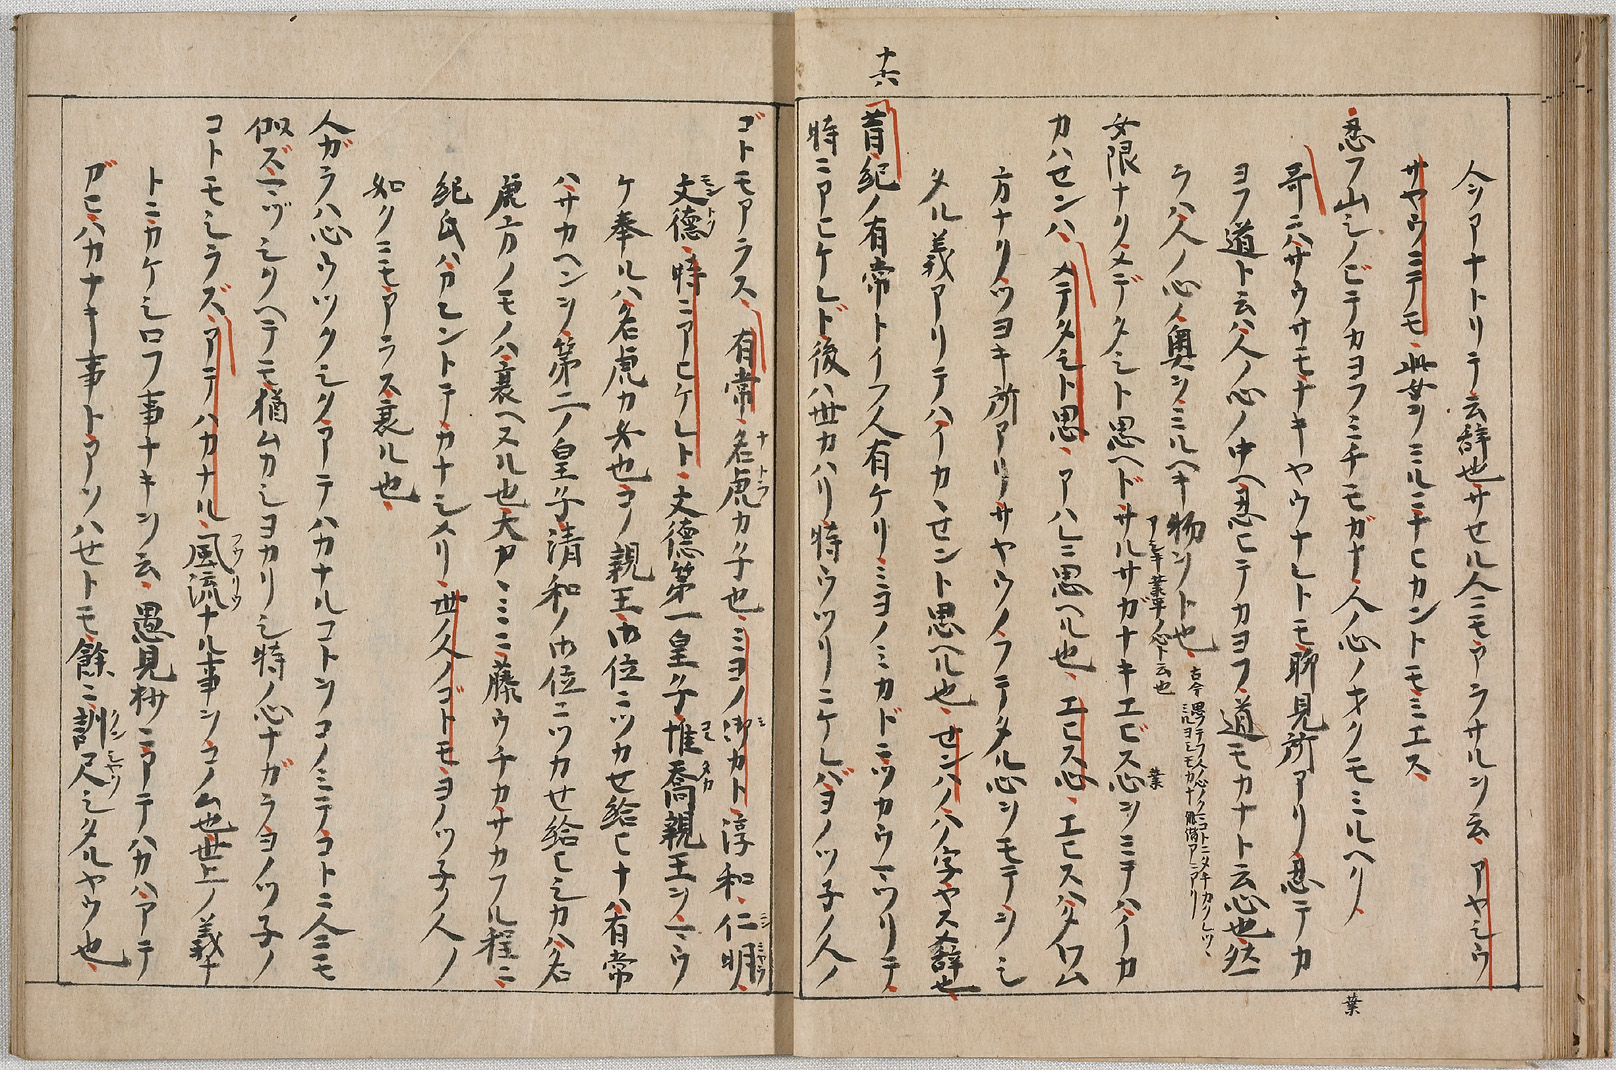 人ヲアナトリテ云辞也サせル人ニモアラサルヲ云アヤシウ
サヤウニテモ此女ヲミルニナヒカントモミエス
忍フ山シノビテカヨフミチモガナ人ノ心ノオクモミルヘク
葉
哥ニハサウサモナキヤウナレトモ聊見所アリ忍テカ
ヨフ道ト云ハ人ノ心ノ中ヘ忍ヒテカヨフ道モカナト云心也然
ラハ人ノ心ノ奥ヲミルヘキ物ヲト也
古今思フテフ人ノ心ノクマコトニタチカクレツヽ
ミルヨシモカナ
女限ナクメデタシト思ヘドサルサガナキエビス心ヲミテハイカ
アシキ業平ノ心ト云也
業
カハせンハメテタシト思アハレニ思ヘル也エヒス心エヒスハタケム
方ナリツヨキ所アリサヤウノフテタル心ヲモテヲシ
タル義アリテハイカカせント思ヘル也せンハノハノ字ヤス辞也
十六
昔紀ノ有常トイフ人有ケリミヨノミカドニツカウマツリテ
時ニアヒケレド後ハ世カハリ時ウツリニケレバヨノツ子ノ人ノ
ゴトモアラス有常名虎カ子也ミヨノ御カト淳和仁明
ナトラ
ミ
ミヤウ
文德時ニアヒケレト文德第一皇子惟喬親王ヲマウ
モントク
コレタカ
ケ奉ルハ名虎カ女也ヨノ親王御位ニツカせ給ヒナハ有常
ハサカヘンヲ第二ノ皇子清和ノ御位ニツカせ給ヒシカハ名
虎方ノモノハ衰ヘヌル也大カタミニ藤ウチカサカフル程ニ
紀氏ハカヒントテカナシメリ世ノ人ノゴトモヨノツ子ノ人ノ
如クニモアラス衰ル也
人ガラハ心ウツクシクアテハカナルコトヲコノミテコトニ人ニモ
似ズマヅシクヘテモ猶ムカシヨカリシ時ノ心ナガラヨノツ子ノ
コトモシラズアテハカナル風流ナル事ヲコノム也世上ノ義ナ
フウリウ
トニカケシロフ事ナキヲ云愚見抄ニアテハカハアテ
ガヒハカナキ事トアソハせトモ餘ニ訓尺シタルヤウ也
クンシヤク